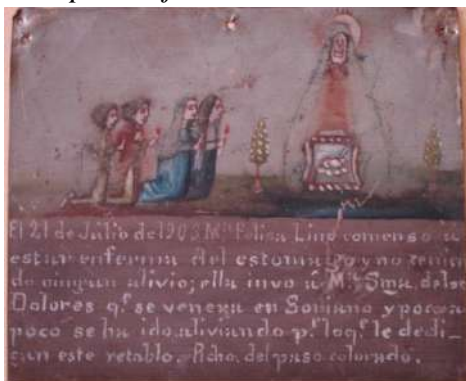 El 21 de Julio del 903 Mª Felisa Lino comenso á
estar enferma del estomago y no tenien
do ningun alivio; ella invo á Mª Sma. de los
Dolores q.e se venera en Soriano y poco a
poco se ha ido aliviando p.r loq.e le dedi-
can este retablo. Rcho. del paso colorado.